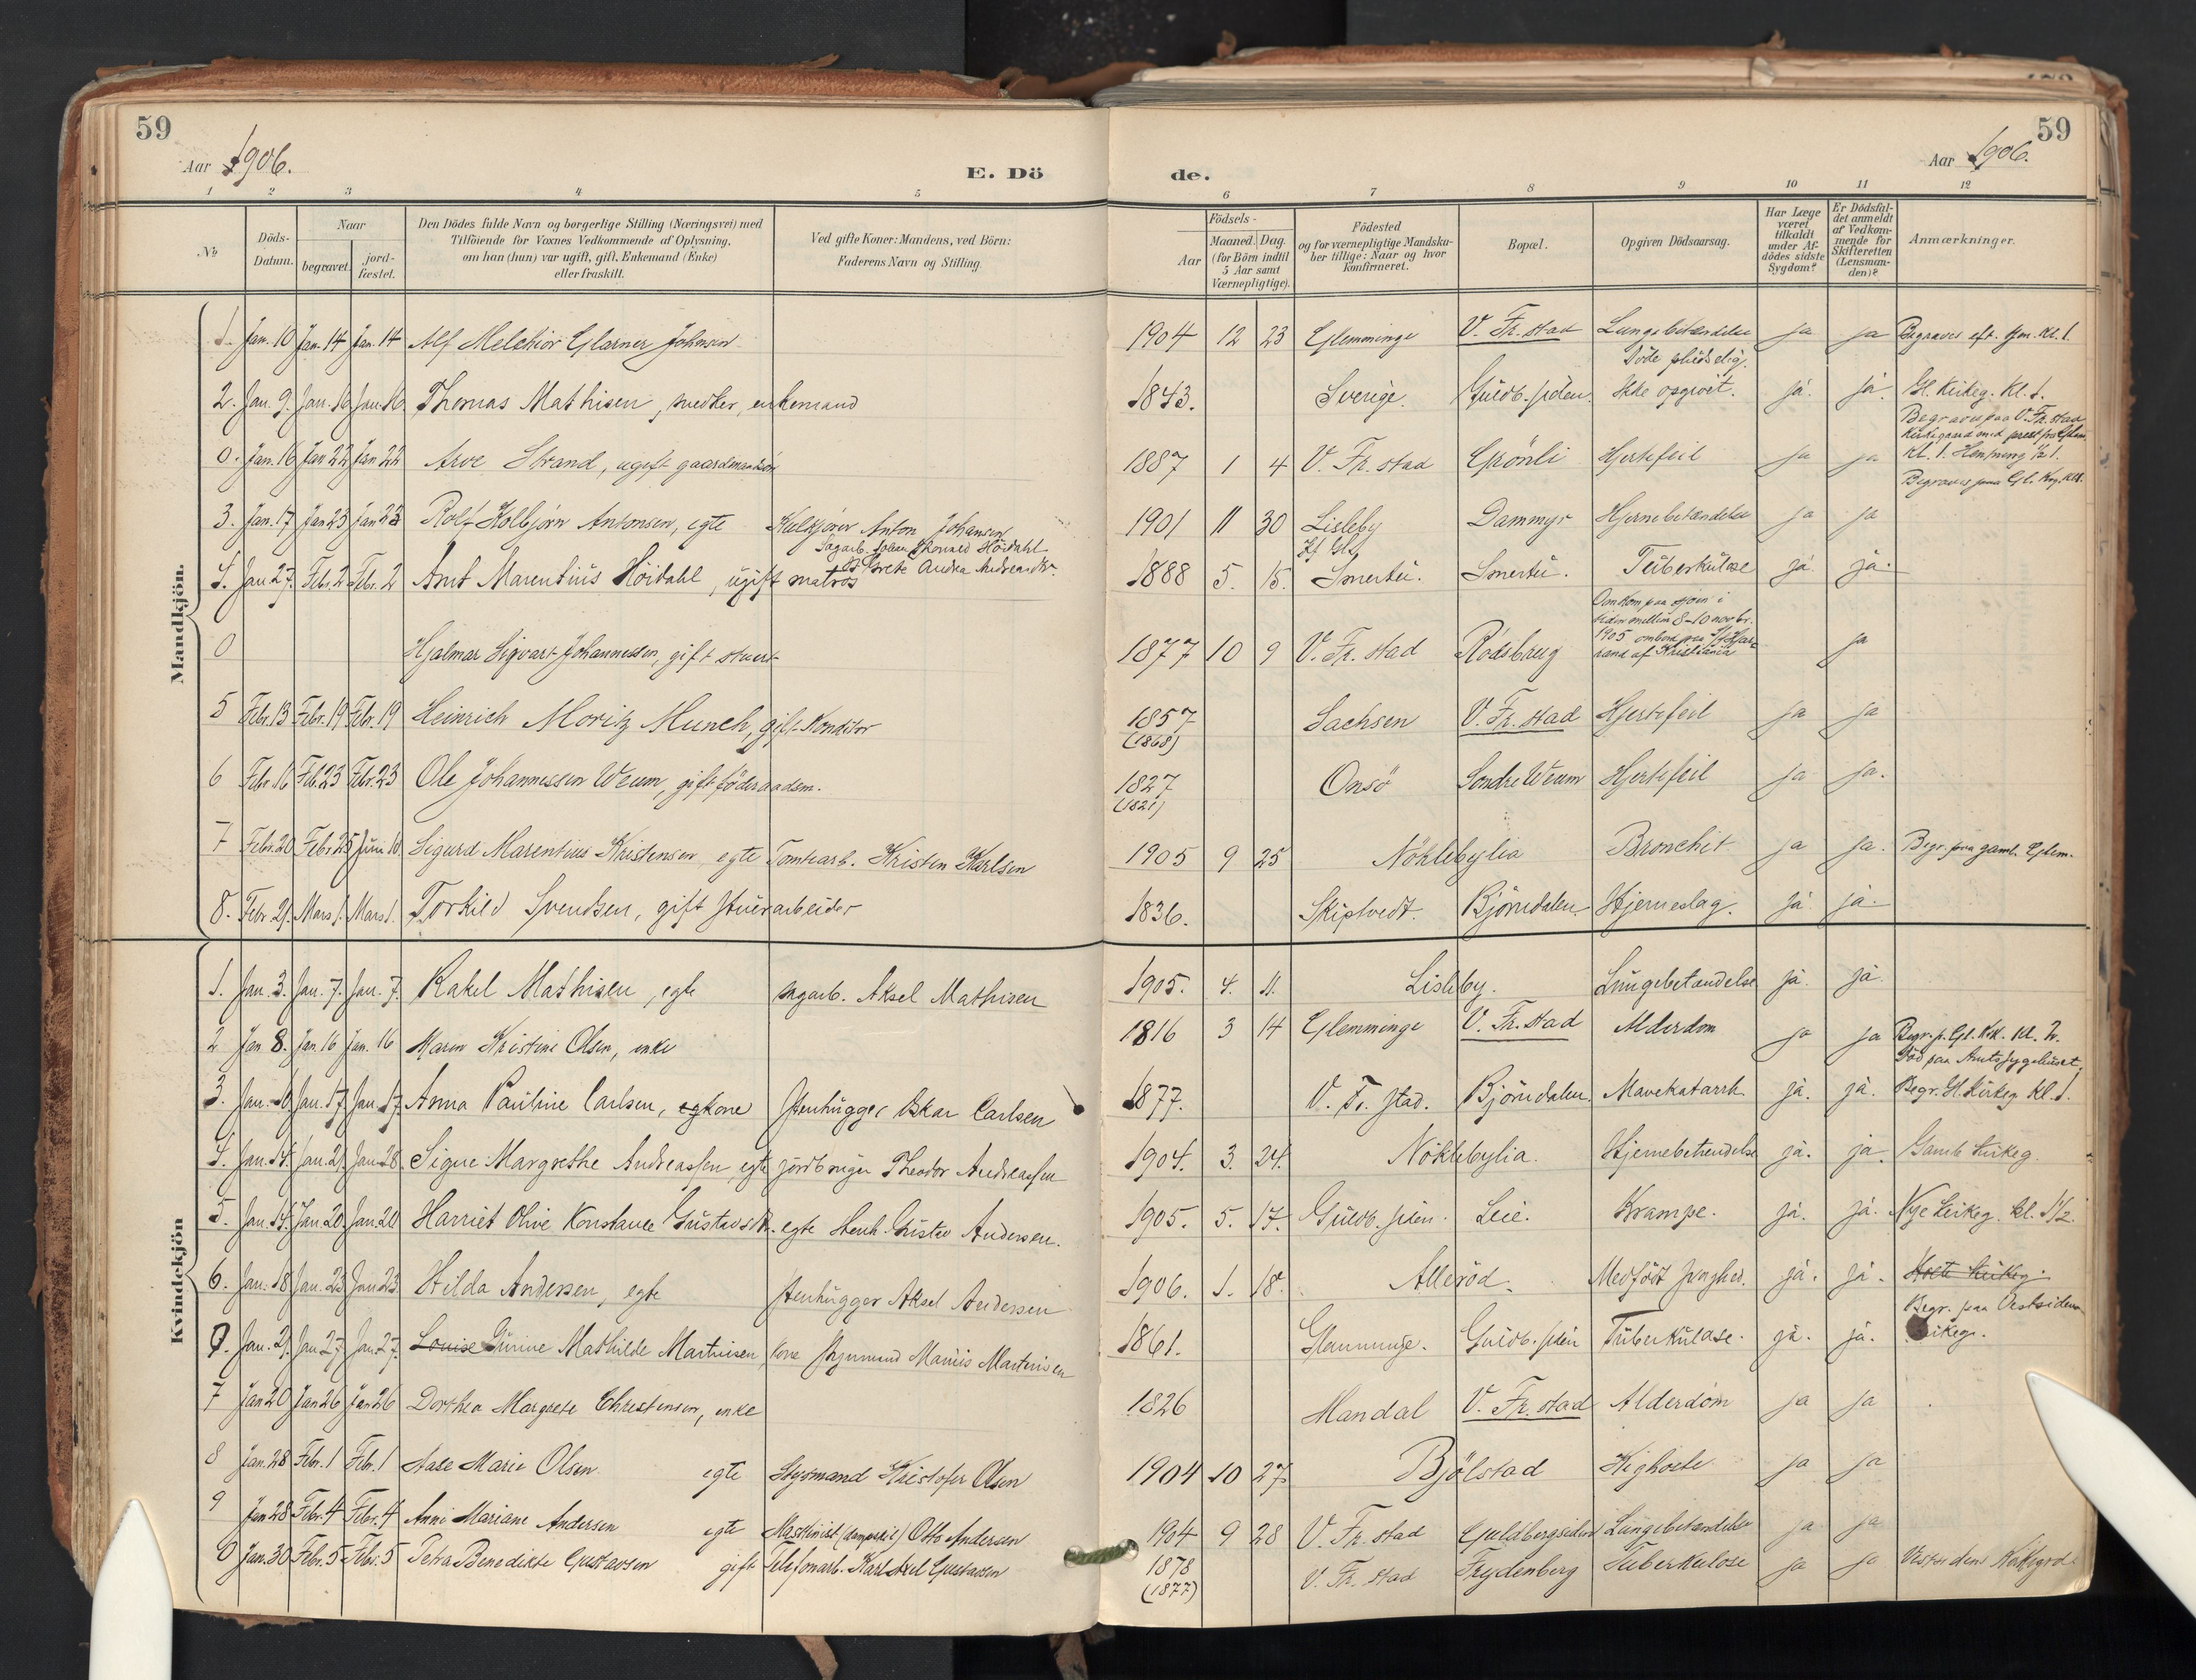 59
Aar 1906.
E. Dö
de.
Aar 1906.
59
1 2 3 4 5 6 7 8 9 10 11 12
No
Döds-Datum.
Naar
begravet.
jord-fæstet.
Den Dödes fulde Navn og borgerlige Stilling (Næringsvei) med
Tilföiende for Voxnes Vedkommende af Oplysning,
om han (hun) var ugift, gift, Enkemand (Enke)
eller fraskilt.
Ved gifte Koner: Mandens, ved Börn:
Faderens Navn og Stilling.
Födsels-
Aar
Maaned. Dag.
(for Börn indtil
5 Aar samt
Værnepligtige).
Födested
og for værnepligtige Mandska-
ber tillige: Naar og hvor
konfirmeret.
Bopæl.
Opgiven Dödsaarsag.
Har Læge
været
tilkaldt
under Af-
dödes sidste
Sygdom?
Er Dödsfal-
det anmeldt
af Vedkom-
mende for
Skifteretten
(Lensman-
den)?
Anmærkninger.
Mandkjön.
1. Jan. 10 Jan. 14 Jan. 14 Alf Melchior Glarner Johnsen 1904 12 23 Glemminge V. Fr. stad Lungebetændelse ja ja Begraves eft. Gm. Kl. 1.
Döde pludselig.
2. Jan. 9. Jan. 16 Jan. 16 Thomas Mathisen, snedker, enkemand 1843. Sverige. Guldb. siden. Ikke opgivet. ja. ja. Gl. Kirkeg. Kl. 1.
Begraves paa V. Fr. stad
0. Jan. 16 Jan 22 Jan 22 Arve Strand, ugift gaardmandssön 1887 1 4 V. Fr. stad Grönli Hjertefeil ja ja Kl. 1.
Begraves paa Gl. Krg. Kl 1.
3. Jan. 17 Jan 23 Jan 23 Rolf Kolbjörn Antonsen, egte Kulkjörer Anton Johansen 1901 11 30 Lisleby Dammyr Hjernebetændelse ja ja
Sagarb. Johan Thorvald Höidahl
4. Jan 27. Febr. 2 Febr. 2 Arnt Marentius Höidahl, ugift matros 1888 5. 15. Smertu. Smertu. Tuberkulose ja. ja.
Omkom paa sjöen i
tiden mellem 8-10 novbr.
1905 ombord paa
0 Hjalmar Sigvart Johannessen, gift stuert 1877 10 9 V. Fr. stad Rödsbrug af Kristiania ja
5 Febr. 13 Febr. 19 Febr. 19 Heinrich Moritz Munch, gift Konditor 1857 (1868) Sachsen V. Fr. stad Hjertefeil ja ja
6 Febr. 16 Feb. 23 Febr. 23 Ole Johannessen Weum, gift föderaadsm. 1827 (1821) Onsö Söndre Weum Hjertefeil ja ja.
7 Febr. 20 Febr 25 Juni 10 Sigurd Marentius Kristensen, egte Tomtearb. Kristen Karlsen 1905 9 25 Nöklebylia Bronchit ja ja. Begr. paa gaml. Glem.
8. Febr. 21. Mars 1. Mars 1. Torkild Svendsen, gift Stuerarbeider 1836. Skiptvedt. Björndalen. Hjerneslag. ja. ja.
Kvindekjön
1. Jan. 3. Jan. 7. Jan. 7. Rakel Mathisen, egte sagarb. Aksel Mathisen 1905. 4. 11. Lisleby. Lungebetændelse ja. ja.
2 Jan 8. Jan. 16 Jan. 16 Maren Kristine Olsen, enke 1816 3 14 Glemminge V. Fr. stad Alderdom ja ja Begr. p. Gl. Krk. Kl. 12.
Död paa Amtssygehuset.
3. Jan. 16 Jan. 17. Jan. 17. Anna Pauline Carlsen, kone Stenhugger Oskar Carlsen 1877. V. Fr. stad. Björndalen. Mavekatarrh ja. ja. Begr. Gl. Kirkeg Kl. 1.
4. Jan. 14. Jan. 21. Jan. 28 Signe Margrethe Andreassen, egte jordbruger Theodor Andreassen 1904. 3. 24. Nöklebylia. Hjernebetændelse ja. ja. Gamle Kirkeg.
5. Jan. 14. Jan. 20. Jan. 20 Harriet Olive Konstance Gustavsdtr. egte Stenh. Gustav Andersen. 1905. 5. 17. Guldb. siden. Leie. Krampe. ja. ja. Nye Kirkeg. kl. 1 1/2.
6. Jan. 18 Jan. 23. Jan 23 Hilda Andersen, egte Stenhugger Aksel Andersen 1906. 1. 18. Alleröd. Medfödt svaghed. ja. ja. Kirkeg.
Begr. paa Vestsidens
0. Jan. 21. Jan 27. Jan. 27. Louise Gurine Mathilde Martinsen, kone Styrmand Martinsen 1861. Glemminge. Guldb. siden Tuberkulose. ja. ja. Kirkeg.
7 Jan 20 Jan 26 Jan 26 Dorthea Margrete Christensen, enke 1826 Mandal V. Fr. stad Alderdom ja ja
8 Jan. 28 Febr. 1 Febr. 1 Aase Marie Olsen egte Styrmand Kristofer Olsen 1904 10 27. Bjölstad Kighoste ja ja
9 Jan 28 Febr. 4 Febr. 4 Anni Mariane Andersen egte Maskinist (dampskib) Otto Andersen 1904 9 28 V. Fr. stad Guldbergsiden Lungebetændelse ja ja
0 Jan. 30 Febr. 5 Febr. 5 Petra Benedikte Gustavsen gift Telefonarb. Karl Axel Gustavsen 1878 (1877) V. Fr. stad Frydenberg Tuberkulose ja ja Vestsidens Kirkegrd.